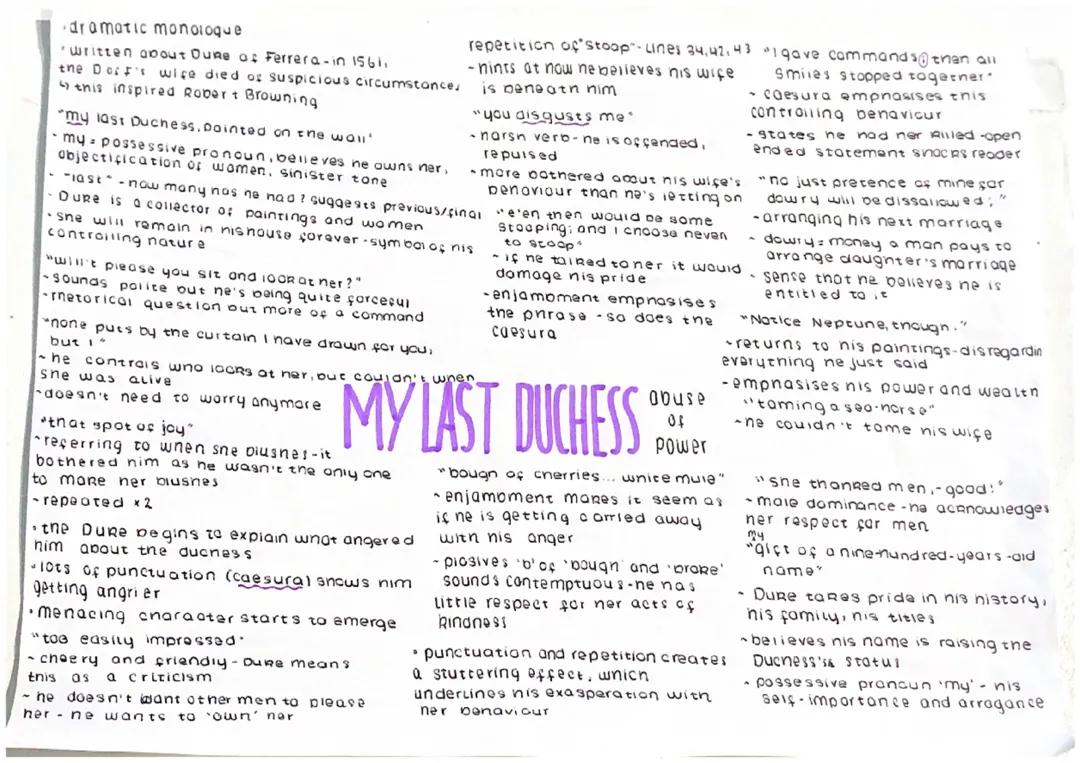 ·dramatic monologue
·written about Duke of Ferrera-in 1561,
the Doff's wife died of suspicious circumstances
↳ this inspired Robert Browning
"my last Duchess, painted on the wall"
- my = possessive pronoun, believes he owns her,
objectification of women, sinister tone
- "last" - how many has he had? suggests previous/final
- Duke is a collector of paintings and women
- she will remain in his house forever - symbol of his
controlling nature
"will't please you sit and look at her?"
- sounds polite but he's being quite forceful
- rhetorical question but more of a command
"none puts by the curtain I have drawn for you,
but I"
~ he controls who looks at her, but couldn't when
she was alive
~doesn't need to worry anymore
"that spot of joy"
~referring to when she blushes-it
bothered him as he wasn't the only one
to make her blushes
~ repeated x2
·the Duke begins to explain what angered
him about the duchess
·lots of punctuation (caesura) shows him
getting angrier
·menacing character starts to emerge
"too easily impressed"
~ cheery and friendly - Duke means
this as a criticism
~ he doesn't want other men to please
her - he wants to 'own' her
repetition of "stoop"- Lines 34,42,43
- hints at how he believes his wife
is beneath him
"you disgusts me"
- harsh verb- he is offended,
repulsed
- more bothered about his wife's
behaviour than he's letting on
"e'en then would be some
stooping; and I choose never
to stoop"
- if he talked to her it would
damage his pride
-enjambment emphasises
the phrase - so does the
caesura
MY LAST DUCHESS
abuse
of
power
"bough of cherries... white mule"
~ enjambment makes it seem as
if he is getting carried away
with his anger
~ plosives 'b' of 'bough' and 'broke'
sounds contemptuous - he has
little respect for her acts of
kindness
• punctuation and repetition creates
a stuttering effect, which
underlines his exasperation with
her behaviour
"I gave commands; then all
smiles stopped together"
~ caesura emphasises this
controlling behaviour
- states he had her killed -open
ended statement shocks reader
"no just pretence of mine for
dowry will be disallowed;"
-arranging his next marriage
- dowry = money a man pays to
arrange daughter's marriage
- sense that he believes he is
entitled to it
"Notice Neptune, though."
~returns to his paintings-disregardin
everything he just said
-emphasises his power and wealth
"taming a sea-horse"
~he couldn't tame his wife
"she thanked men,-good!"
~ male dominance - he acknowledges
her respect for men
my
"gift of a nine-hundred-years-old
name"
- Duke takes pride in his history,
his family, his titles
~ believes his name is raising the
Duchess's status
- possessive pronoun 'my' - his
self-importance and arrogance